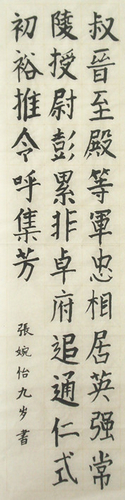 叔晉至殿等軍忠相居英强常
陵授尉彭累非卓府追通仁式
初裕推令呼集芳
張婉怡九岁書